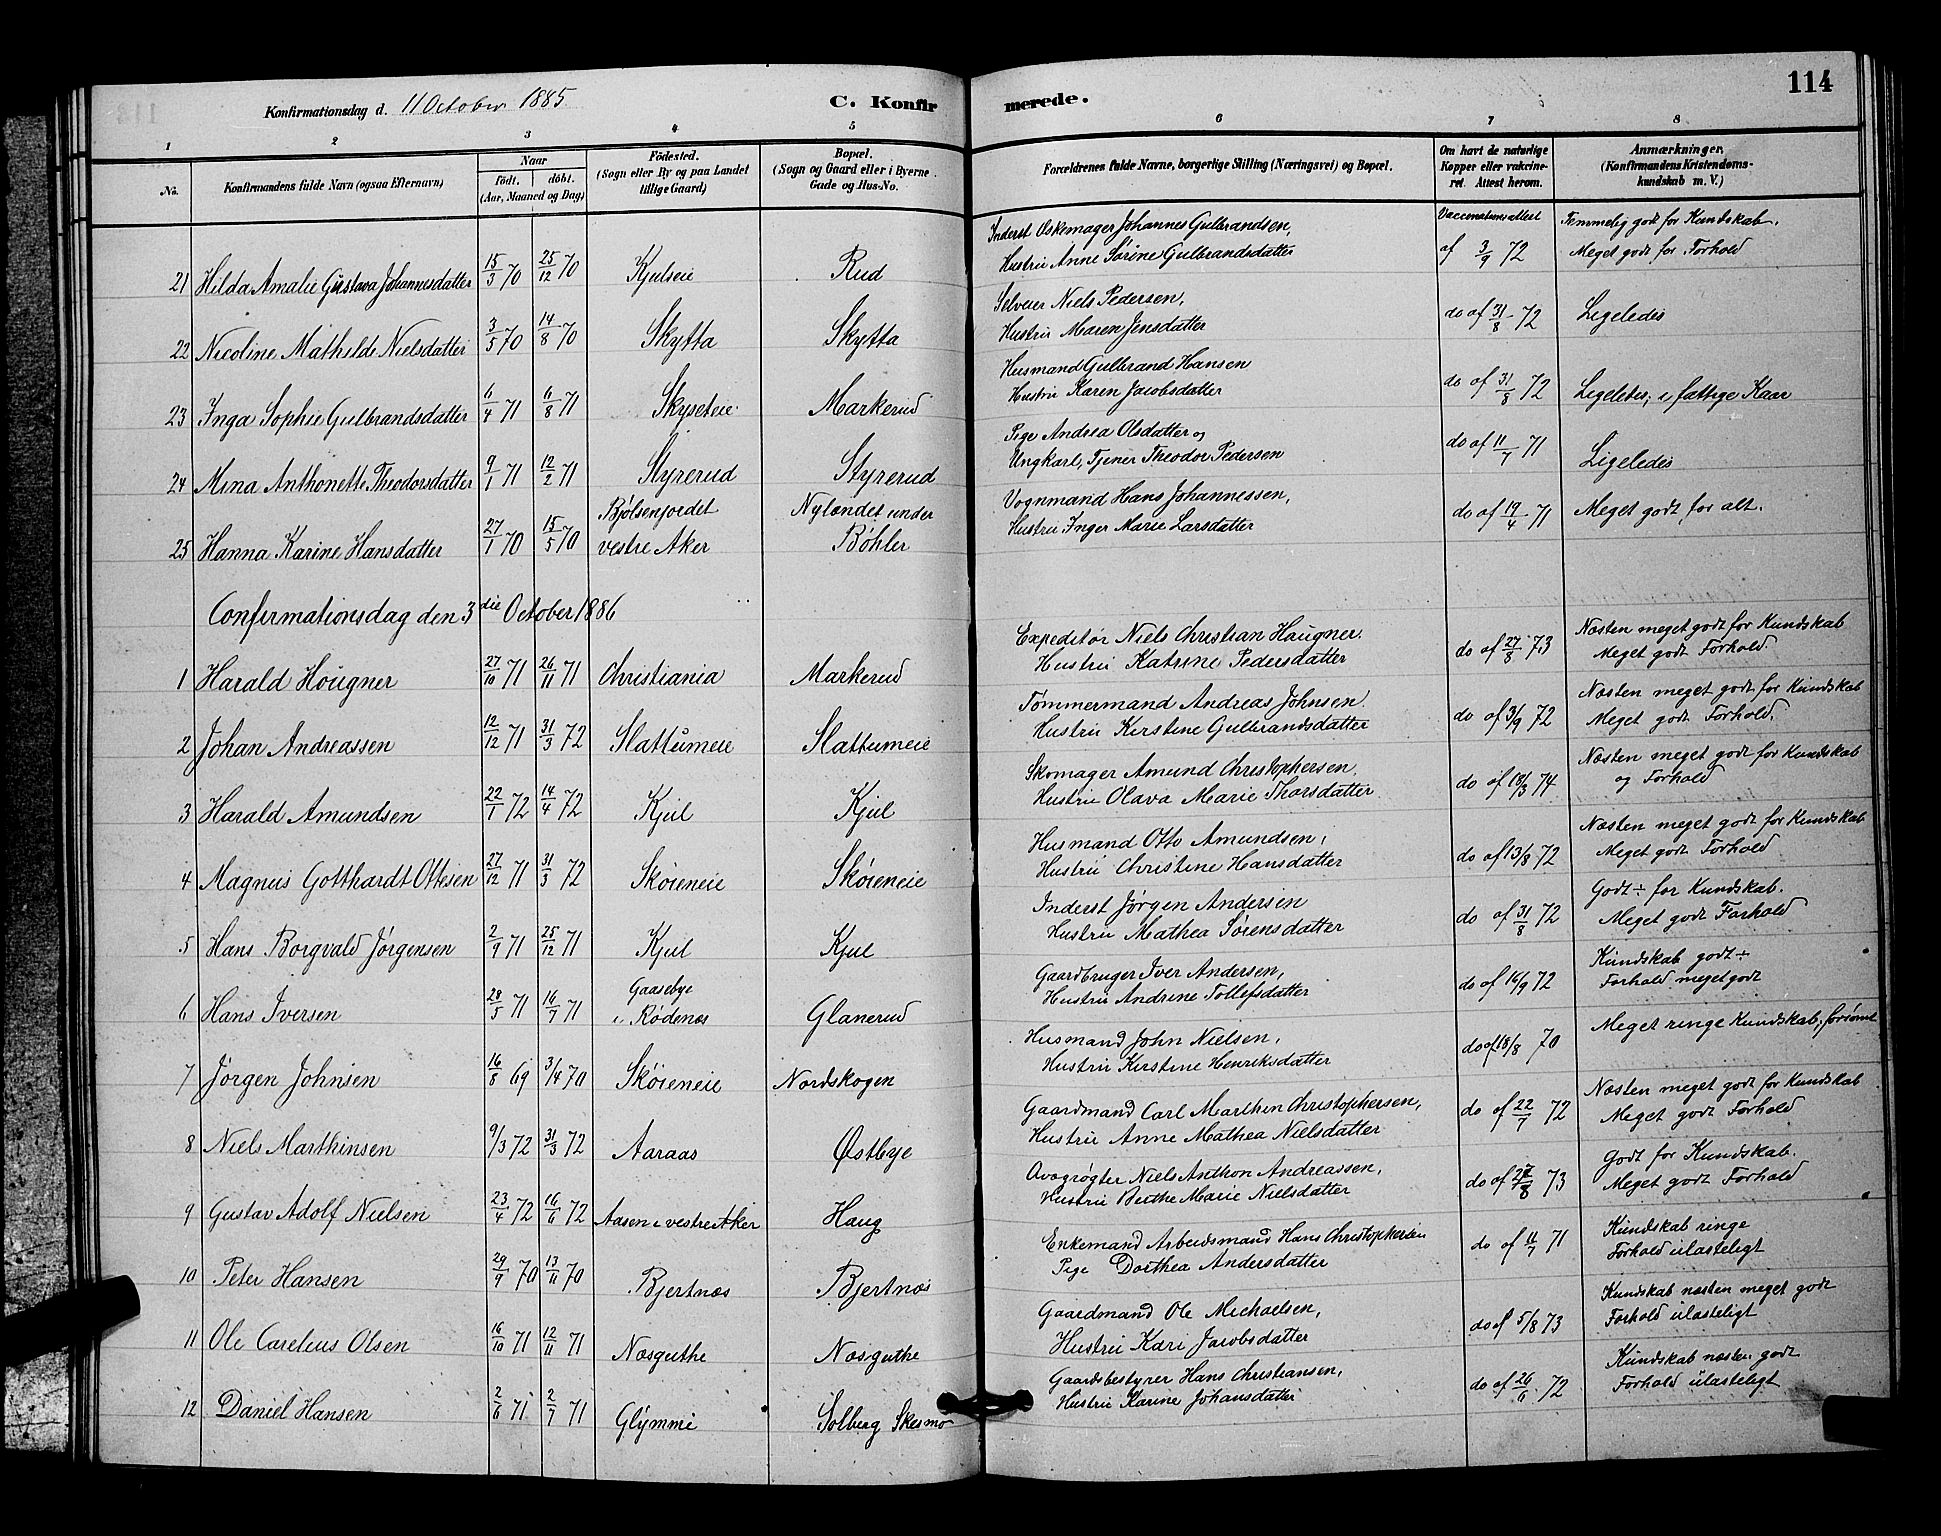 114
Konfirmationsdag d. 11 October 1885
C. Konfirmerede.
1 2 3 4 5 6 7 8
No.
Konfirmandens fulde Navn (ogsaa Efternavn)
Naar
födt. döbt.
(Aar, Maaned og Dag)
Födested.
(Sogn eller By og paa Landet
tillige Gaard)
Bopæl.
(Sogn og Gaard eller i Byerne
Gade og Hus-No.
Forældrenes fulde Navne, borgerlige Stilling (Næringsvei) og Bopæl.
Om havt de naturlige
Kopper eller vakcine-
ret. Attest herom.
Anmærkninger.
(Konfirmandens Kristendoms-
kundskab m. V.)
Inderst Oskemager Johannes Gulbrandsen, Vaccinationsattest Temmelig godt for Kundskab.
21 Hilda Amalie Gustava Johannesdatter 15/3 70 25/12 70 Kjulseie Rud Hustru Anne Sørine Gulbrandsdatter af 3/9 72 Meget godt for Forhold
Selveier Niels Pedersen,
22 Nicoline Mathilde Nielsdatter 3/5 70 14/8 70 Skytta Skytta Hustru Maren Jensdatter do af 31/8 72 Ligeledes
Husmand Gulbrand Hansen
23 Inga Sophie Gulbrandsdatter 6/4 71 6/8 71 Skyseteie Markerud Hustru Karen Jacobsdatter do af 31/8 72 Ligeledes; i fattige Kaar
Pige Andrea Olsdatter og
24 Mina Anthonette Theodorsdatter 9/1 71 12/2 71 Styrerud Styrerud Ungkarl, Tjener Theodor Pedersen do af 11/7 71 Ligeledes
Bjølsenjordet Nylændet under Vognmand Hans Johannessen,
25 Hanna Karine Hansdatter 27/1 70 15/5 70 vestre Aker Bøhler Hustru Inger Marie Larsdatter do af 19/4 71 Meget godt for alt.
Confirmationsdag den 3die October 1886
Expeditør Niels Christian Haugner. Næsten meget godt for Kundskab
1 Harald Hougner 27/10 71 26/11 71 Christiania Markerud Hustru Katrine Pedersdatter do af 27/8 73 Meget godt Forhold.
Tømmermand Andreas Johnsen Næsten meget godt for Kundskab
2 Johan Andreassen 12/12 71 31/3 72 Slattumeie Slattumeie Hustru Kerstine Gulbrandsdatter do af 3/9 72 Meget godt Forhold.
Skomager Amund Christophersen, Næsten meget godt for Kundskab
3 Harald Amundsen 22/1 72 14/4 72 Kjul Kjul Hustru Olava Marie Thorsdatter do af 18/3 74 og Forhold
Husmand Otto Amundsen, Næsten meget godt for Kundskab
4 Magnus Gotthardt Ottesen 27/12 71 31/3 72 Skøieneie Skøieneie Hustru Christine Hansdatter do af 13/8 72 Meget godt Forhold
Inderst Jørgen Andersen Godt ÷ for Kundskab.
5 Hans Borgvald Jørgensen 2/9 71 25/12 71 Kjul Kjul Hustru Mathea Sørensdatter do af 31/8 72 Meget godt Forhold
Gaasebye Gaardbruger Iver Andersen, Kundskab godt ÷
6 Hans Iversen 28/5 71 16/7 71 i Rødenæs Glanerud Hustru Andrine Tollefsdatter do af 16/9 72 Forhold meget godt
Husmand John Nielsen, Meget ringe Kundskab, forsømt
7 Jørgen Johnsen 16/8 69 3/4 70 Skøieneie Nordskogen Hustru Kerstine Henriksdatter do af 18/8 70
Gaardmand Carl Marthin Christophersen, Næsten meget godt for Kundskab
8 Niels Marthinsen 9/3 72 31/3 72 Aaraas Østbye Hustru Anne Mathea Nielsdatter do af 22/7 72 Meget godt Forhold
Avgrøgter Niels Anthon Andreassen, Godt for Kundskab.
9 Gustav Adolf Nielsen 23/4 72 16/6 72 Aasen i vestre Aker Haug Hustru Berthe Marie Nielsdatter do af 27/8 73 Meget godt Forhold
Enkemand Arbeidsmand Hans Christophersen Kundskab ringe
10 Peter Hansen 29/9 70 13/11 70 Bjertnæs Bjertnæs Pige Dorthea Andersdatter do af 11/7 71 Forhold ulasteligt
Gaardmand Ole Michaelsen, Kundskab næsten meget godt
11 Ole Carelius Olsen 16/10 71 12/11 71 Næsguthe Næsguthe Hustru Kari Jacobsdatter do af 5/8 73 Forhold ulasteligt
Gaardsbestyrer Hans Christiansen, Kundskab næsten godt
12 Daniel Hansen 2/6 71 2/7 71 Glymmi Solberg Skesmo Hustru Karine Johansdatter do af 26/6 72 Forhold ulasteligt